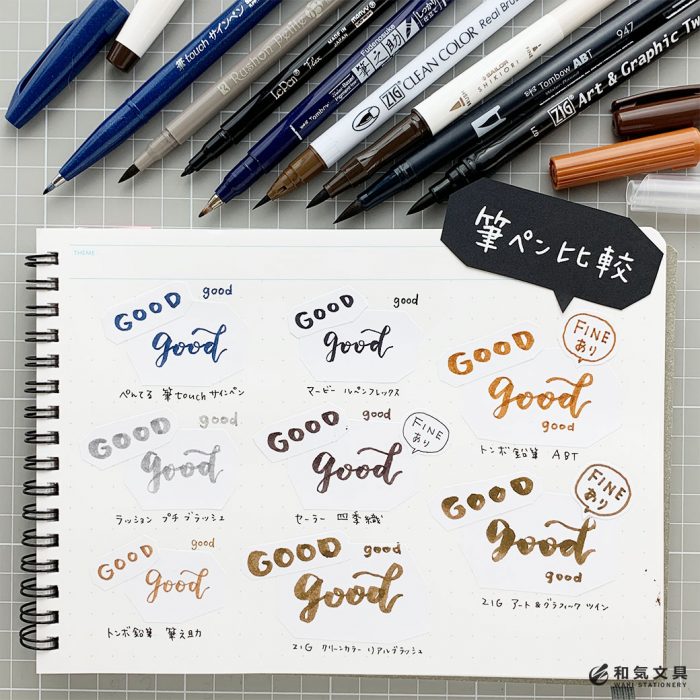 筆touch サインペン
Rushon Petite
MADE IN JAPAN
marvy
LePen Flex
Fudenosuke
筆之助
しっかり
Tombow
ZIG CLEAN COLOR Real Brush
SAILOR
SHIKIORI
Tombow ABT
947
ZIG Art & Graphic Tw
筆ペン比較
THEME
GOOD good
good
ぺんてる 筆touchサインペン
GOOD good
good
マービー ルペンフレックス
FINE
あり
GOOD
good
good
トンボ鉛筆 ABT
GOOD good
good
ラッション プチブラッシュ
GOOD good
FINE
あり
good
セーラー 四季織
FINE
あり
GOOD
good
good
ZIG アート&グラフィックツイン
GOOD good
good
トンボ鉛筆 筆之助
GOOD good
good
ZIG クリーンカラーリアルブラッシュ
和気文具
WAKI STATIONERY